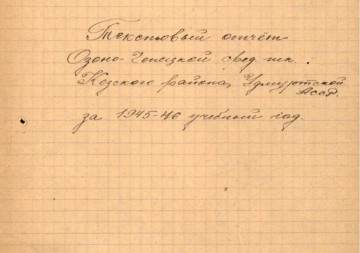 Текстовый отчёт
Озоно-Чепецкой сред. шк.
Кезского района, Удмуртской
АССР.
за 1945-46 учебный год.